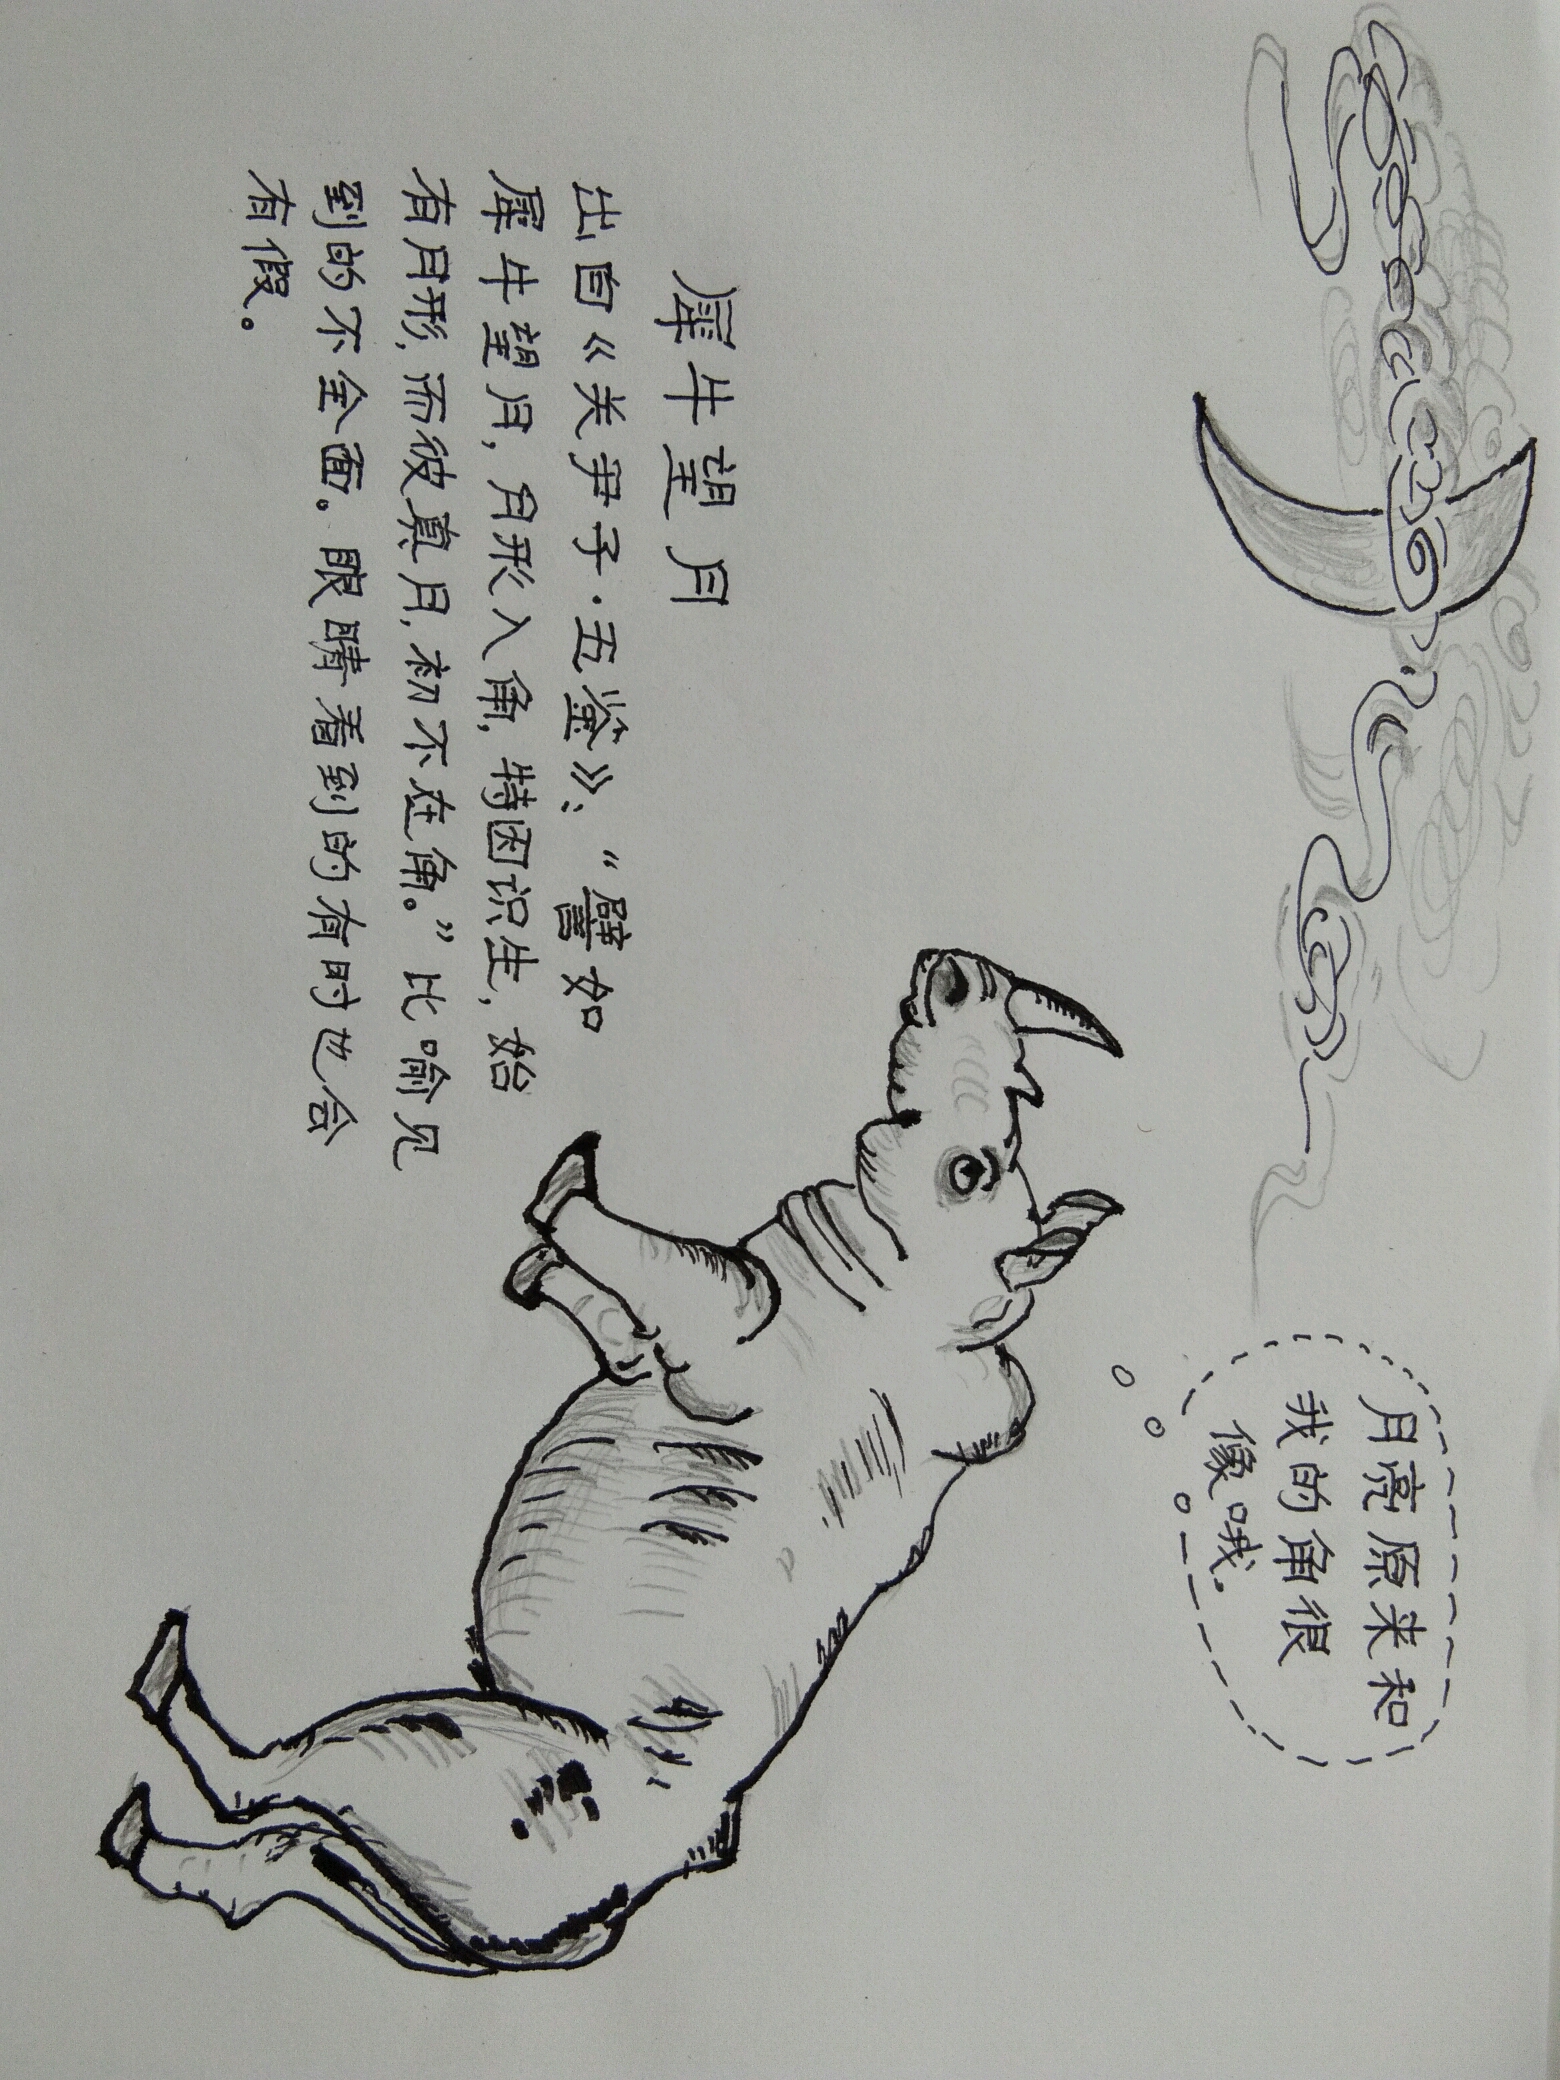 犀牛望月
出自《关尹子·五鉴》：“譬如
犀牛望月，月形入角，特因识生，始
有月形，而彼真月，初不在角。”比喻见
到的不全面。眼睛看到的有时也会
有假。
月亮原来和
我的角很
像哦。